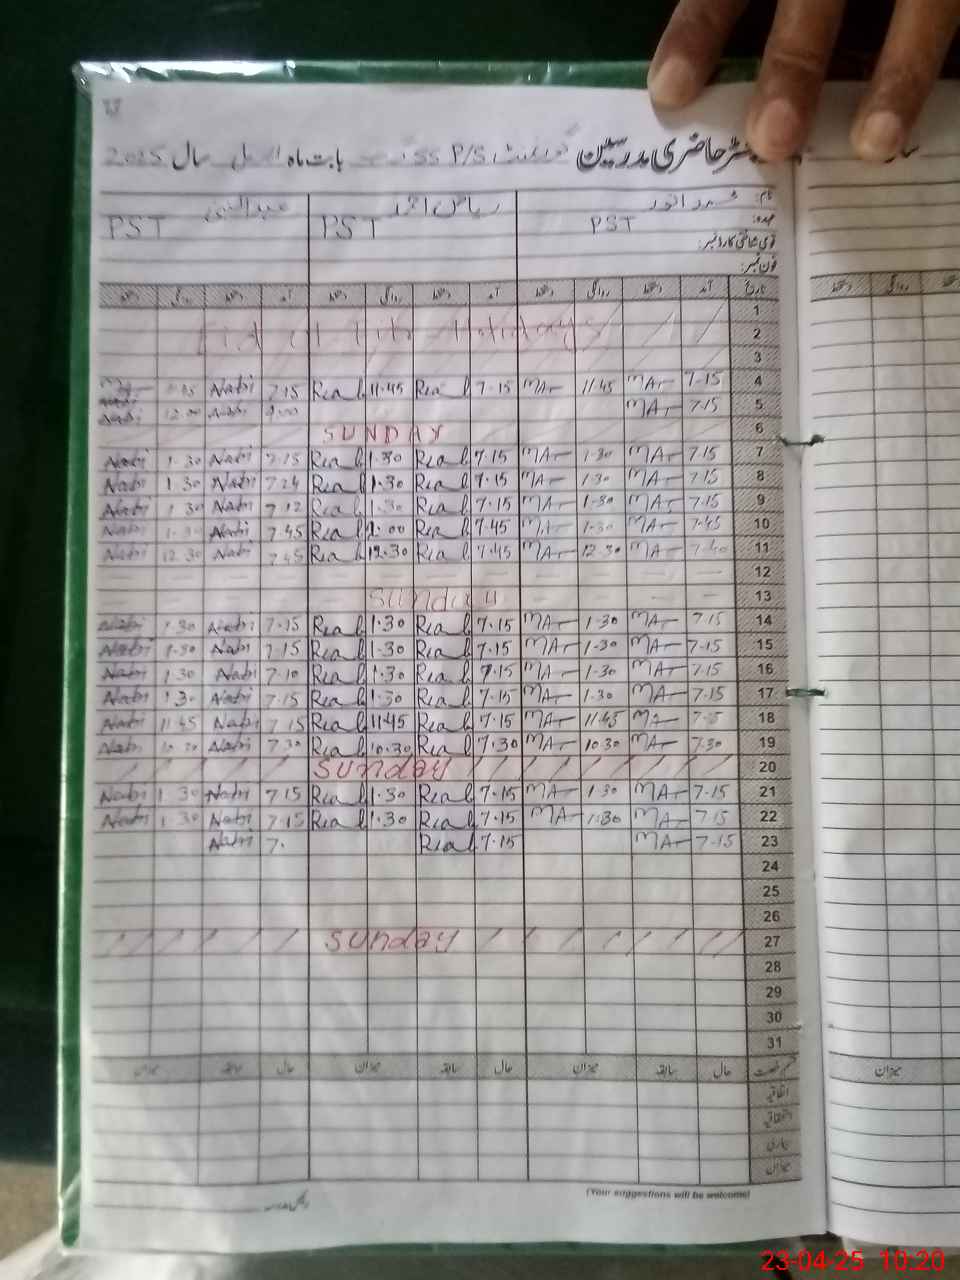 رجسٹر حاضری مدرسین گورنمنٹ SS P/S بابت ماہ اپریل سال 2025
نام:
ریاض احمد
عبدالنبی
عہدہ:
PST
PST
PST
قومی شناختی کارڈ نمبر:
فون نمبر:
تاریخ آمد دستخط روانگی دستخط آمد دستخط روانگی دستخط آمد دستخط روانگی دستخط
1
2 Eid ul Fitr Holidays
3
4 7-15 MAr 11.45 MAr 7.15 Riaz 11.45 Riaz 7.15 Nabi
5 7.15 MAr 9.00 Nabi 12.00 Nabi
6 SUNDAY
7 7.15 MAr 1-30 MAr 7.15 Riaz 1.30 Riaz 7.15 Nabi 1.30 Nabi
8 7.15 MAr 1.30 MAr 7.15 Riaz 1.30 Riaz 7.24 Nabi 1.30 Nabi
9 7.15 MAr 1.30 MAr 7.15 Riaz 1.30 Riaz 7.12 Nabi 1.30 Nabi
10 7.45 MAr 1.30 MAr 7.45 Riaz 1.00 Riaz 7.45 Nabi 1.30 Nabi
11 7.40 MAr 12.30 MAr 7.45 Riaz 12.30 Riaz 7.45 Nabi 12.30 Nabi
12 — — — — — — — — — — — —
13 Sunday
14 7.15 MAr 1.30 MAr 7.15 Riaz 1.30 Riaz 7.15 Nabi 1.30 Nabi
15 7.15 MAr 1.30 MAr 7.15 Riaz 1.30 Riaz 7.15 Nabi 1.30 Nabi
16 7.15 MAr 1.30 MAr 7.15 Riaz 1.30 Riaz 7.10 Nabi 1.30 Nabi
17 7.15 MAr 1.30 MAr 7.15 Riaz 1.30 Riaz 7.15 Nabi 1.30 Nabi
18 MAr 11.45 MAr 7.15 Riaz 11.45 Riaz 7.15 Nabi 11.45 Nabi
19 7.30 MAr 10.30 MAr 7.30 Riaz 10.30 Riaz 7.30 Nabi 10.30 Nabi
20 Sunday
21 7.15 MAr 1.30 MAr 7.15 Riaz 1.30 Riaz 7.15 Nabi 1.30 Nabi
22 7.15 MAr 1.30 MAr 7.15 Riaz 1.30 Riaz 7.15 Nabi 1.30 Nabi
23 7-15 MAr 7.15 Riaz 7. Nabi
24
25
26
27 Sunday
28
29
30
31
قسم رخصت حال سابقہ میزان حال سابقہ میزان حال سابقہ میزان
اتفاقیہ
استحقاقیہ
بیماری
میزان
(Your suggestions will be welcome)
23-04-25 10:20